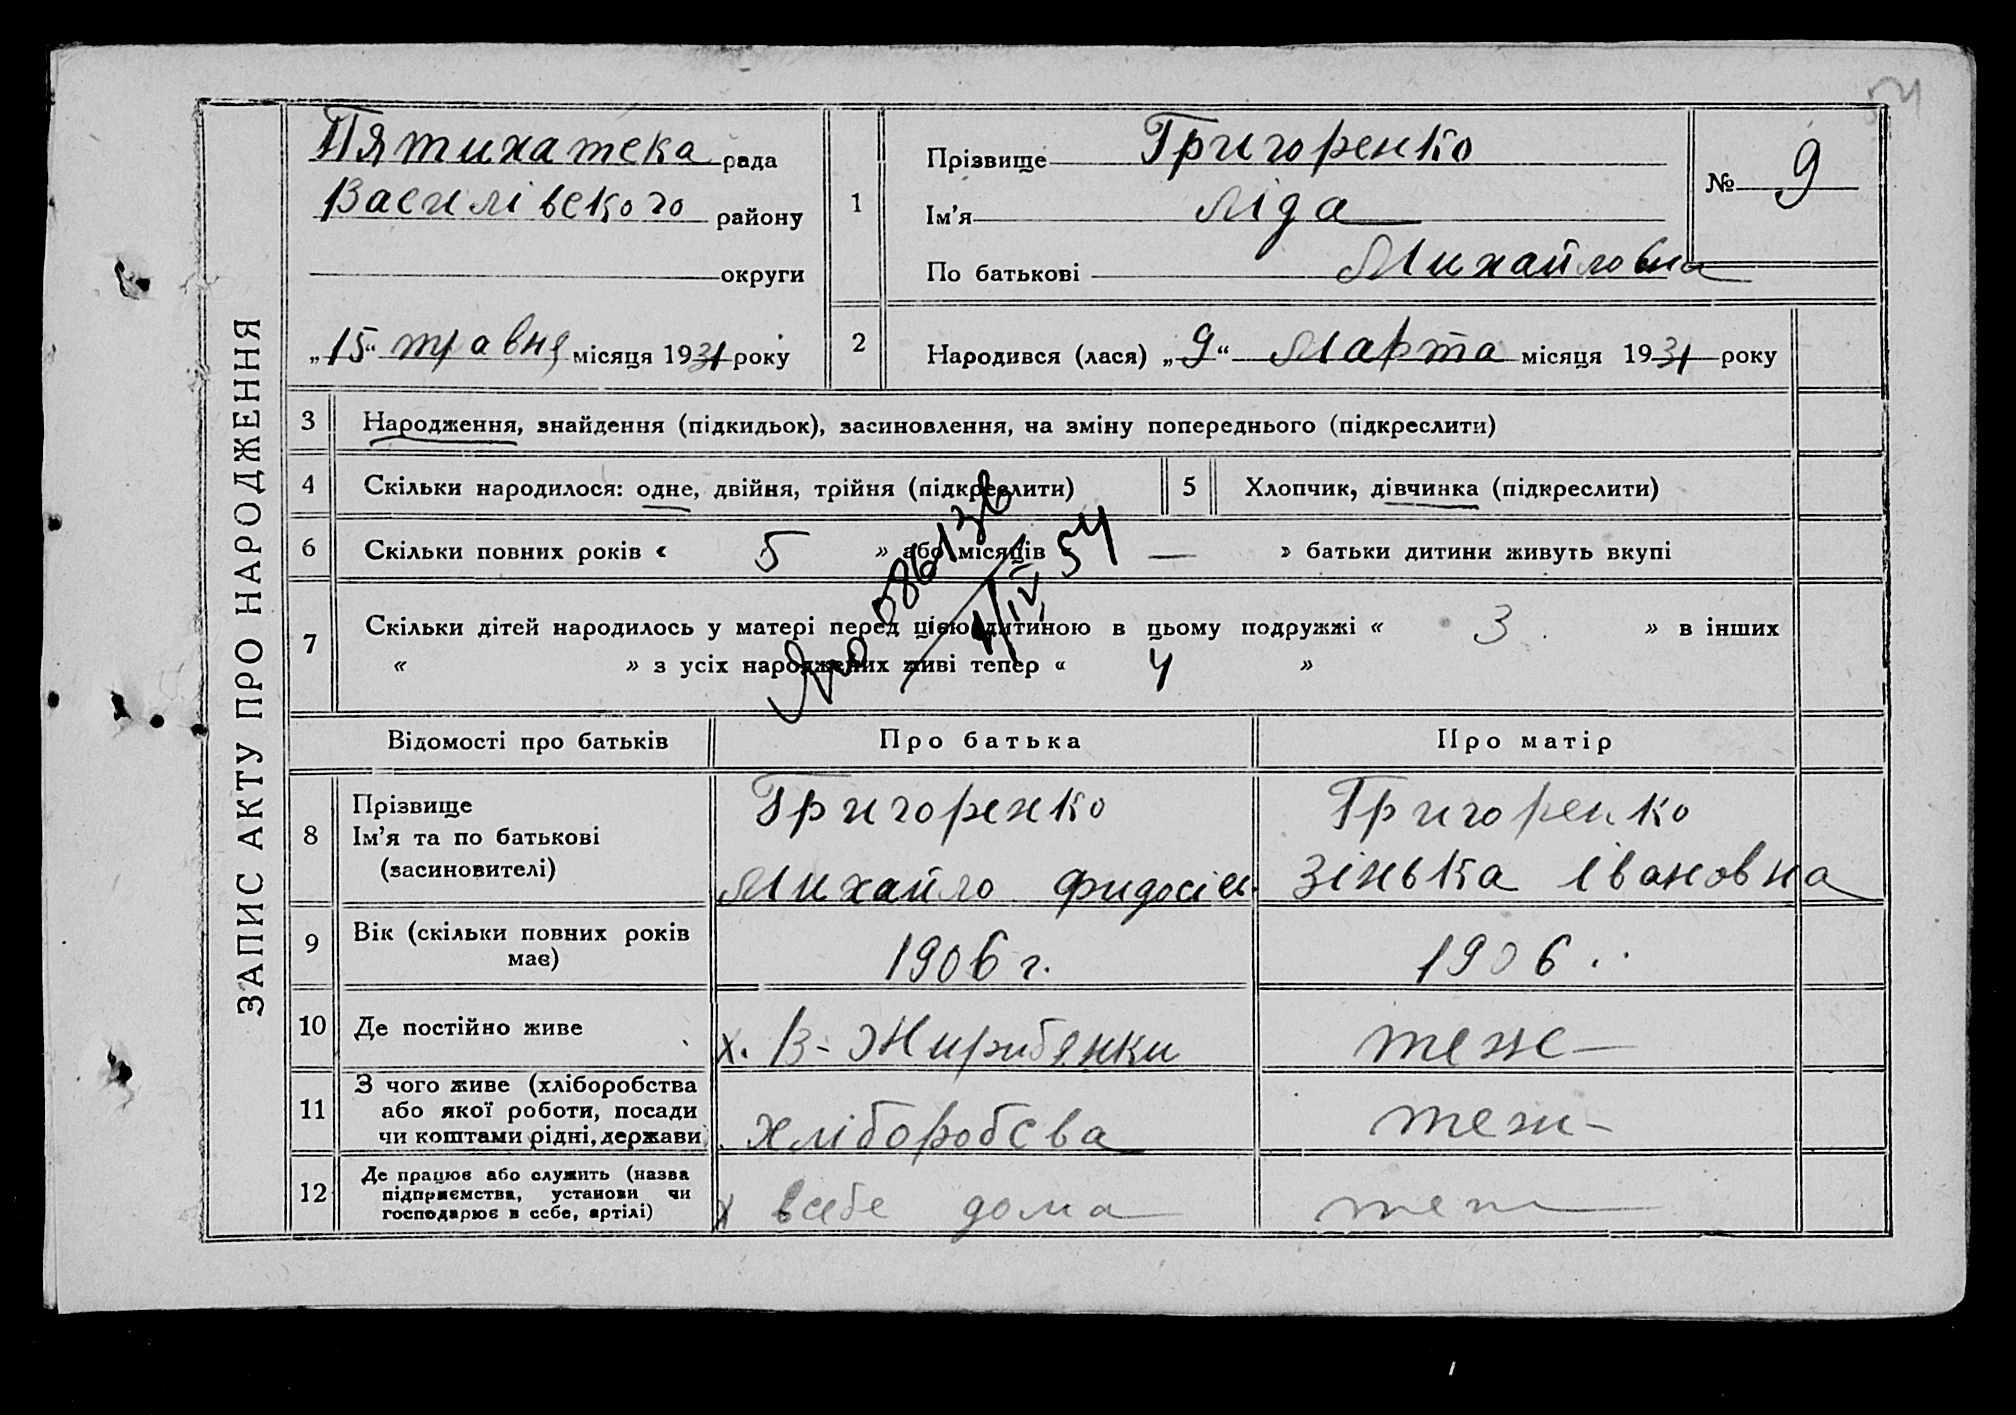 54
ЗАПИС АКТУ ПРО НАРОДЖЕННЯ
Пятихатска рада
Василівского району
округи
„15“ травня місяця 1931 року
1
Прізвище Григоренко
Ім’я Ліда
По батькові Михайловна
№ 9
2
Народився (лася) „9“ Марта місяця 1931 року
3 Народження, знайдення (підкидьок), засиновлення, на зміну попереднього (підкреслити)
4 Скільки народилося: одне, двійня, трійня (підкреслити)
5 Хлопчик, дівчинка (підкреслити)
6 Скільки повних років « 5 » або місяців — » батьки дитини живуть вкупі
7 Скільки дітей народилось у матері перед цією дитиною в цьому подружжі « 3 » в інших
« » з усіх народжених живі тепер « 4 »
4/IV 54
Відомості про батьків Про батька Про матір
8 Прізвище
Ім’я та по батькові
(засиновителі)
Григоренко
Михайло Фидосіев.
Григоренко
Зінька Івановна
9 Вік (скільки повних років
має)
1906 г.
1906 ..
10 Де постійно живе
х. В-Жирибянки
теже —
11 З чого живе (хліборобства
або якої роботи, посади
чи коштами рідні, держави
хліборобсва
теж -
12 Де працює або служить (назва
підприємства, установи чи
господарює в себе, артілі)
х всебе дома
теж